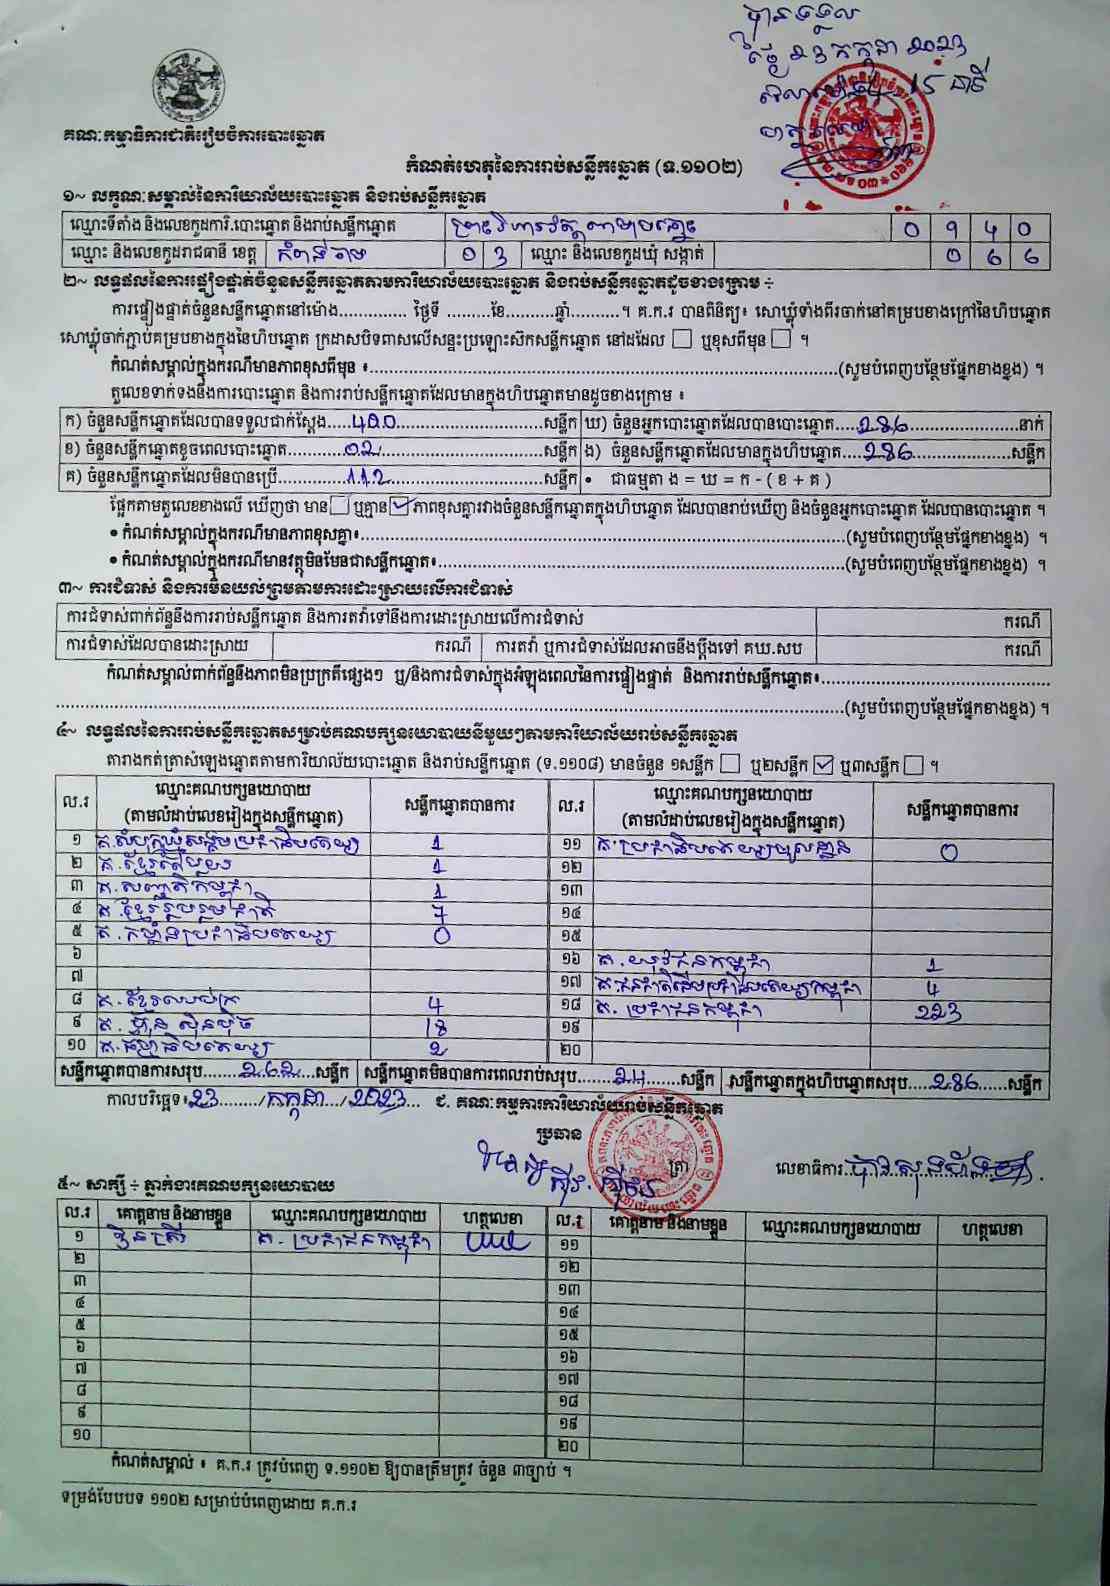 បានទទួល
ថ្ងៃ 23 កក្កដា 2023
15 នាទី
គណៈកម្មាធិការជាតិរៀបចំការបោះឆ្នោត
កំណត់ហេតុនៃការរាប់សន្លឹកឆ្នោត (ទ.១១០២)
១~ លក្ខណៈសម្គាល់នៃការិយាល័យបោះឆ្នោត និងរាប់សន្លឹកឆ្នោត
ឈ្មោះទីតាំង និងលេខកូដការិ.បោះឆ្នោត និងរាប់សន្លឹកឆ្នោត 0 9 4 0
ឈ្មោះ និងលេខកូដរាជធានី ខេត្ត កំពង់ចាម 0 3 ឈ្មោះ និងលេខកូដឃុំ សង្កាត់ 0 6 6
២~ លទ្ធផលនៃការផ្ទៀងផ្ទាត់ចំនួនសន្លឹកឆ្នោតតាមការិយាល័យបោះឆ្នោត និងរាប់សន្លឹកឆ្នោតដូចខាងក្រោម ÷
ការផ្ទៀងផ្ទាត់ចំនួនសន្លឹកឆ្នោតនៅម៉ោង.............. ថ្ងៃទី .........ខែ..........ឆ្នាំ..........។ គ.ក.រ បានពិនិត្យ៖ សោឃ្លុំទាំងពីរចាក់នៅគម្របខាងក្រៅនៃហិបឆ្នោត
សោឃ្លុំចាក់ភ្ជាប់គម្របខាងក្នុងនៃហិបឆ្នោត ក្រដាសបិទពាសលើសន្ទះប្រឡោះស៊កសន្លឹកឆ្នោត នៅដដែល ☐ ឬខុសពីមុន ☐ ។
កំណត់សម្គាល់ក្នុងករណីមានភាពខុសពីមុន ៖..........(សូមបំពេញបន្ថែមផ្នែកខាងខ្នង) ។
តួលេខទាក់ទងនឹងការបោះឆ្នោត និងការរាប់សន្លឹកឆ្នោតដែលមានក្នុងហិបឆ្នោតមានដូចខាងក្រោម ៖
ក) ចំនួនសន្លឹកឆ្នោតដែលបានទទួលជាក់ស្ដែង....400....សន្លឹក ឃ) ចំនួនអ្នកបោះឆ្នោតដែលបានបោះឆ្នោត....286....នាក់
ខ) ចំនួនសន្លឹកឆ្នោតខូចពេលបោះឆ្នោត....02....សន្លឹក ង) ចំនួនសន្លឹកឆ្នោតដែលមានក្នុងហិបឆ្នោត....286....សន្លឹក
គ) ចំនួនសន្លឹកឆ្នោតដែលមិនបានប្រើ....112....សន្លឹក • ជាធម្មតា ង = ឃ = ក - ( ខ + គ )
ផ្អែកតាមតួលេខខាងលើ ឃើញថា មាន ☐ ឬគ្មាន ☑ ភាពខុសគ្នារវាងចំនួនសន្លឹកឆ្នោតក្នុងហិបឆ្នោត ដែលបានរាប់ឃើញ និងចំនួនអ្នកបោះឆ្នោត ដែលបានបោះឆ្នោត ។
• កំណត់សម្គាល់ក្នុងករណីមានភាពខុសគ្នា៖..........(សូមបំពេញបន្ថែមផ្នែកខាងខ្នង) ។
• កំណត់សម្គាល់ក្នុងករណីមានវត្ថុមិនមែនជាសន្លឹកឆ្នោត៖..........(សូមបំពេញបន្ថែមផ្នែកខាងខ្នង) ។
៣~ ការជំទាស់ និងការមិនយល់ព្រមតាមការដោះស្រាយលើការជំទាស់
ការជំទាស់ពាក់ព័ន្ធនឹងការរាប់សន្លឹកឆ្នោត និងការតវ៉ាទៅនឹងការដោះស្រាយលើការជំទាស់ ករណី
ការជំទាស់ដែលបានដោះស្រាយ ករណី ការតវ៉ា ឬការជំទាស់ដែលអាចនឹងប្ដឹងទៅ គឃ.សប ករណី
កំណត់សម្គាល់ពាក់ព័ន្ធនឹងភាពមិនប្រក្រតីផ្សេងៗ ឬ/និងការជំទាស់ក្នុងអំឡុងពេលនៃការផ្ទៀងផ្ទាត់ និងការរាប់សន្លឹកឆ្នោត៖..........
..........(សូមបំពេញបន្ថែមផ្នែកខាងខ្នង) ។
៤~ លទ្ធផលនៃការរាប់សន្លឹកឆ្នោតសម្រាប់គណបក្សនយោបាយនីមួយៗតាមការិយាល័យរាប់សន្លឹកឆ្នោត
តារាងកត់ត្រាសំឡេងឆ្នោតតាមការិយាល័យបោះឆ្នោត និងរាប់សន្លឹកឆ្នោត (ទ.១១០៨) មានចំនួន ១សន្លឹក ☐ ឬ២សន្លឹក ☑ ឬ៣សន្លឹក ☐ ។
ល.រ ឈ្មោះគណបក្សនយោបាយ (តាមលំដាប់លេខរៀងក្នុងសន្លឹកឆ្នោត) សន្លឹកឆ្នោតបានការ ល.រ ឈ្មោះគណបក្សនយោបាយ (តាមលំដាប់លេខរៀងក្នុងសន្លឹកឆ្នោត) សន្លឹកឆ្នោតបានការ
១ គ.សំបុកឃ្មុំសង្គមប្រជាធិបតេយ្យ 1 ១១ គ.ប្រជាធិបតេយ្យមូលដ្ឋាន 0
២ គ.ខ្មែរតែមួយ 1 ១២
៣ គ.សញ្ជាតិកម្ពុជា 1 ១៣
៤ គ.ខ្មែររួបរួមជាតិ 7 ១៤
៥ គ.កម្លាំងប្រជាធិបតេយ្យ 0 ១៥
៦ ១៦ គ.យុវជនកម្ពុជា 1
៧ ១៧ គ.ជនជាតិដើមប្រជាធិបតេយ្យកម្ពុជា 4
៨ គ.ខ្មែរឈប់ក្រ 4 ១៨ គ.ប្រជាជនកម្ពុជា 223
៩ គ.ហ្វ៊ុនស៊ិនប៉ិច 18 ១៩
១០ គ.ធម្មាធិបតេយ្យ 2 ២០
សន្លឹកឆ្នោតបានការសរុប....262....សន្លឹក សន្លឹកឆ្នោតមិនបានការពេលរាប់សរុប....24....សន្លឹក សន្លឹកឆ្នោតក្នុងហិបឆ្នោតសរុប....286....សន្លឹក
កាលបរិច្ឆេទ៖ 23 / កក្កដា / 2023 ជ. គណៈកម្មការការិយាល័យរាប់សន្លឹកឆ្នោត
ប្រធាន
ត្រា
លេខាធិការ
៥~ សាក្សី ÷ ភ្នាក់ងារគណបក្សនយោបាយ
ល.រ គោត្តនាម និងនាមខ្លួន ឈ្មោះគណបក្សនយោបាយ ហត្ថលេខា ល.រ គោត្តនាម និងនាមខ្លួន ឈ្មោះគណបក្សនយោបាយ ហត្ថលេខា
១ គ. ប្រជាជនកម្ពុជា ១១
២ ១២
៣ ១៣
៤ ១៤
៥ ១៥
៦ ១៦
៧ ១៧
៨ ១៨
៩ ១៩
១០ ២០
កំណត់សម្គាល់ ៖ គ.ក.រ ត្រូវបំពេញ ទ.១១០២ ឱ្យបានត្រឹមត្រូវ ចំនួន ៣ច្បាប់ ។
ទម្រង់បែបបទ ១១០២ សម្រាប់បំពេញដោយ គ.ក.រ